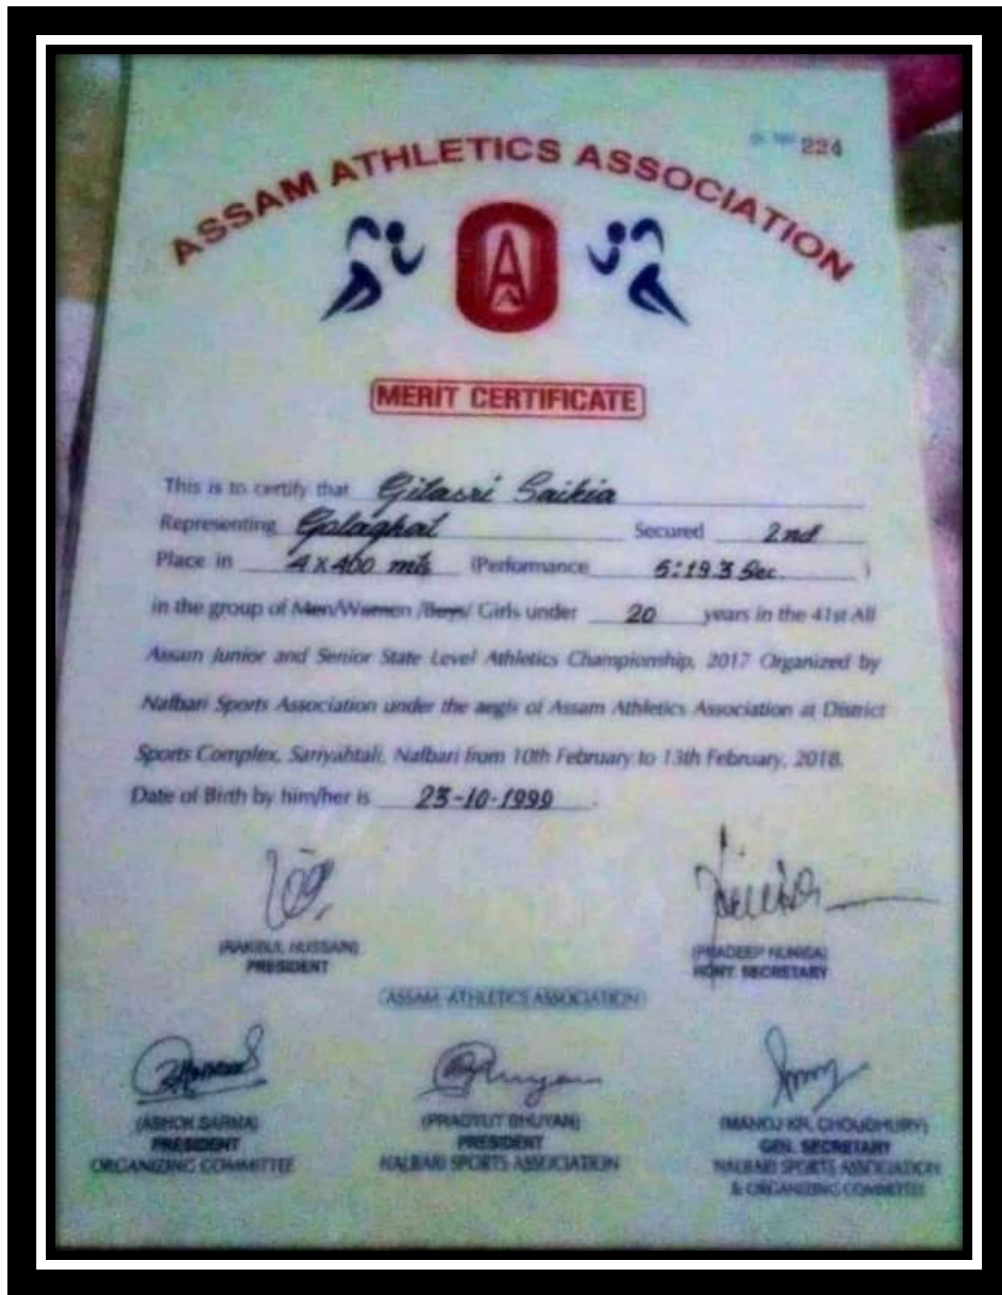 224
ASSAM ATHLETICS ASSOCIATION
A
A
MERIT CERTIFICATE
This is to certify that Gitasri Saikia
Representing Golaghat Secured 2nd
Place in 4x400 mts (Performance 5:19.3 Sec. )
in the group of Men/Women /Boys/ Girls under 20 years in the 41st All
Assam Junior and Senior State Level Athletics Championship, 2017 Organized by
Nalbari Sports Association under the aegis of Assam Athletics Association at District
Sports Complex, Sariyahtali, Nalbari from 10th February to 13th February, 2018.
Date of Birth by him/her is 23-10-1999
(RAKIBUL HUSSAIN)
PRESIDENT
(PRADEEP NUNISA)
HONY. SECRETARY
(ASSAM ATHLETICS ASSOCIATION)
(ASHOK SARMA)
PRESIDENT
ORGANIZING COMMITTEE
(PRADYUT BHUYAN)
PRESIDENT
NALBARI SPORTS ASSOCIATION
(MANOJ KR. CHOUDHURY)
GEN. SECRETARY
NALBARI SPORTS ASSOCIATION
& ORGANIZING COMMITTEE